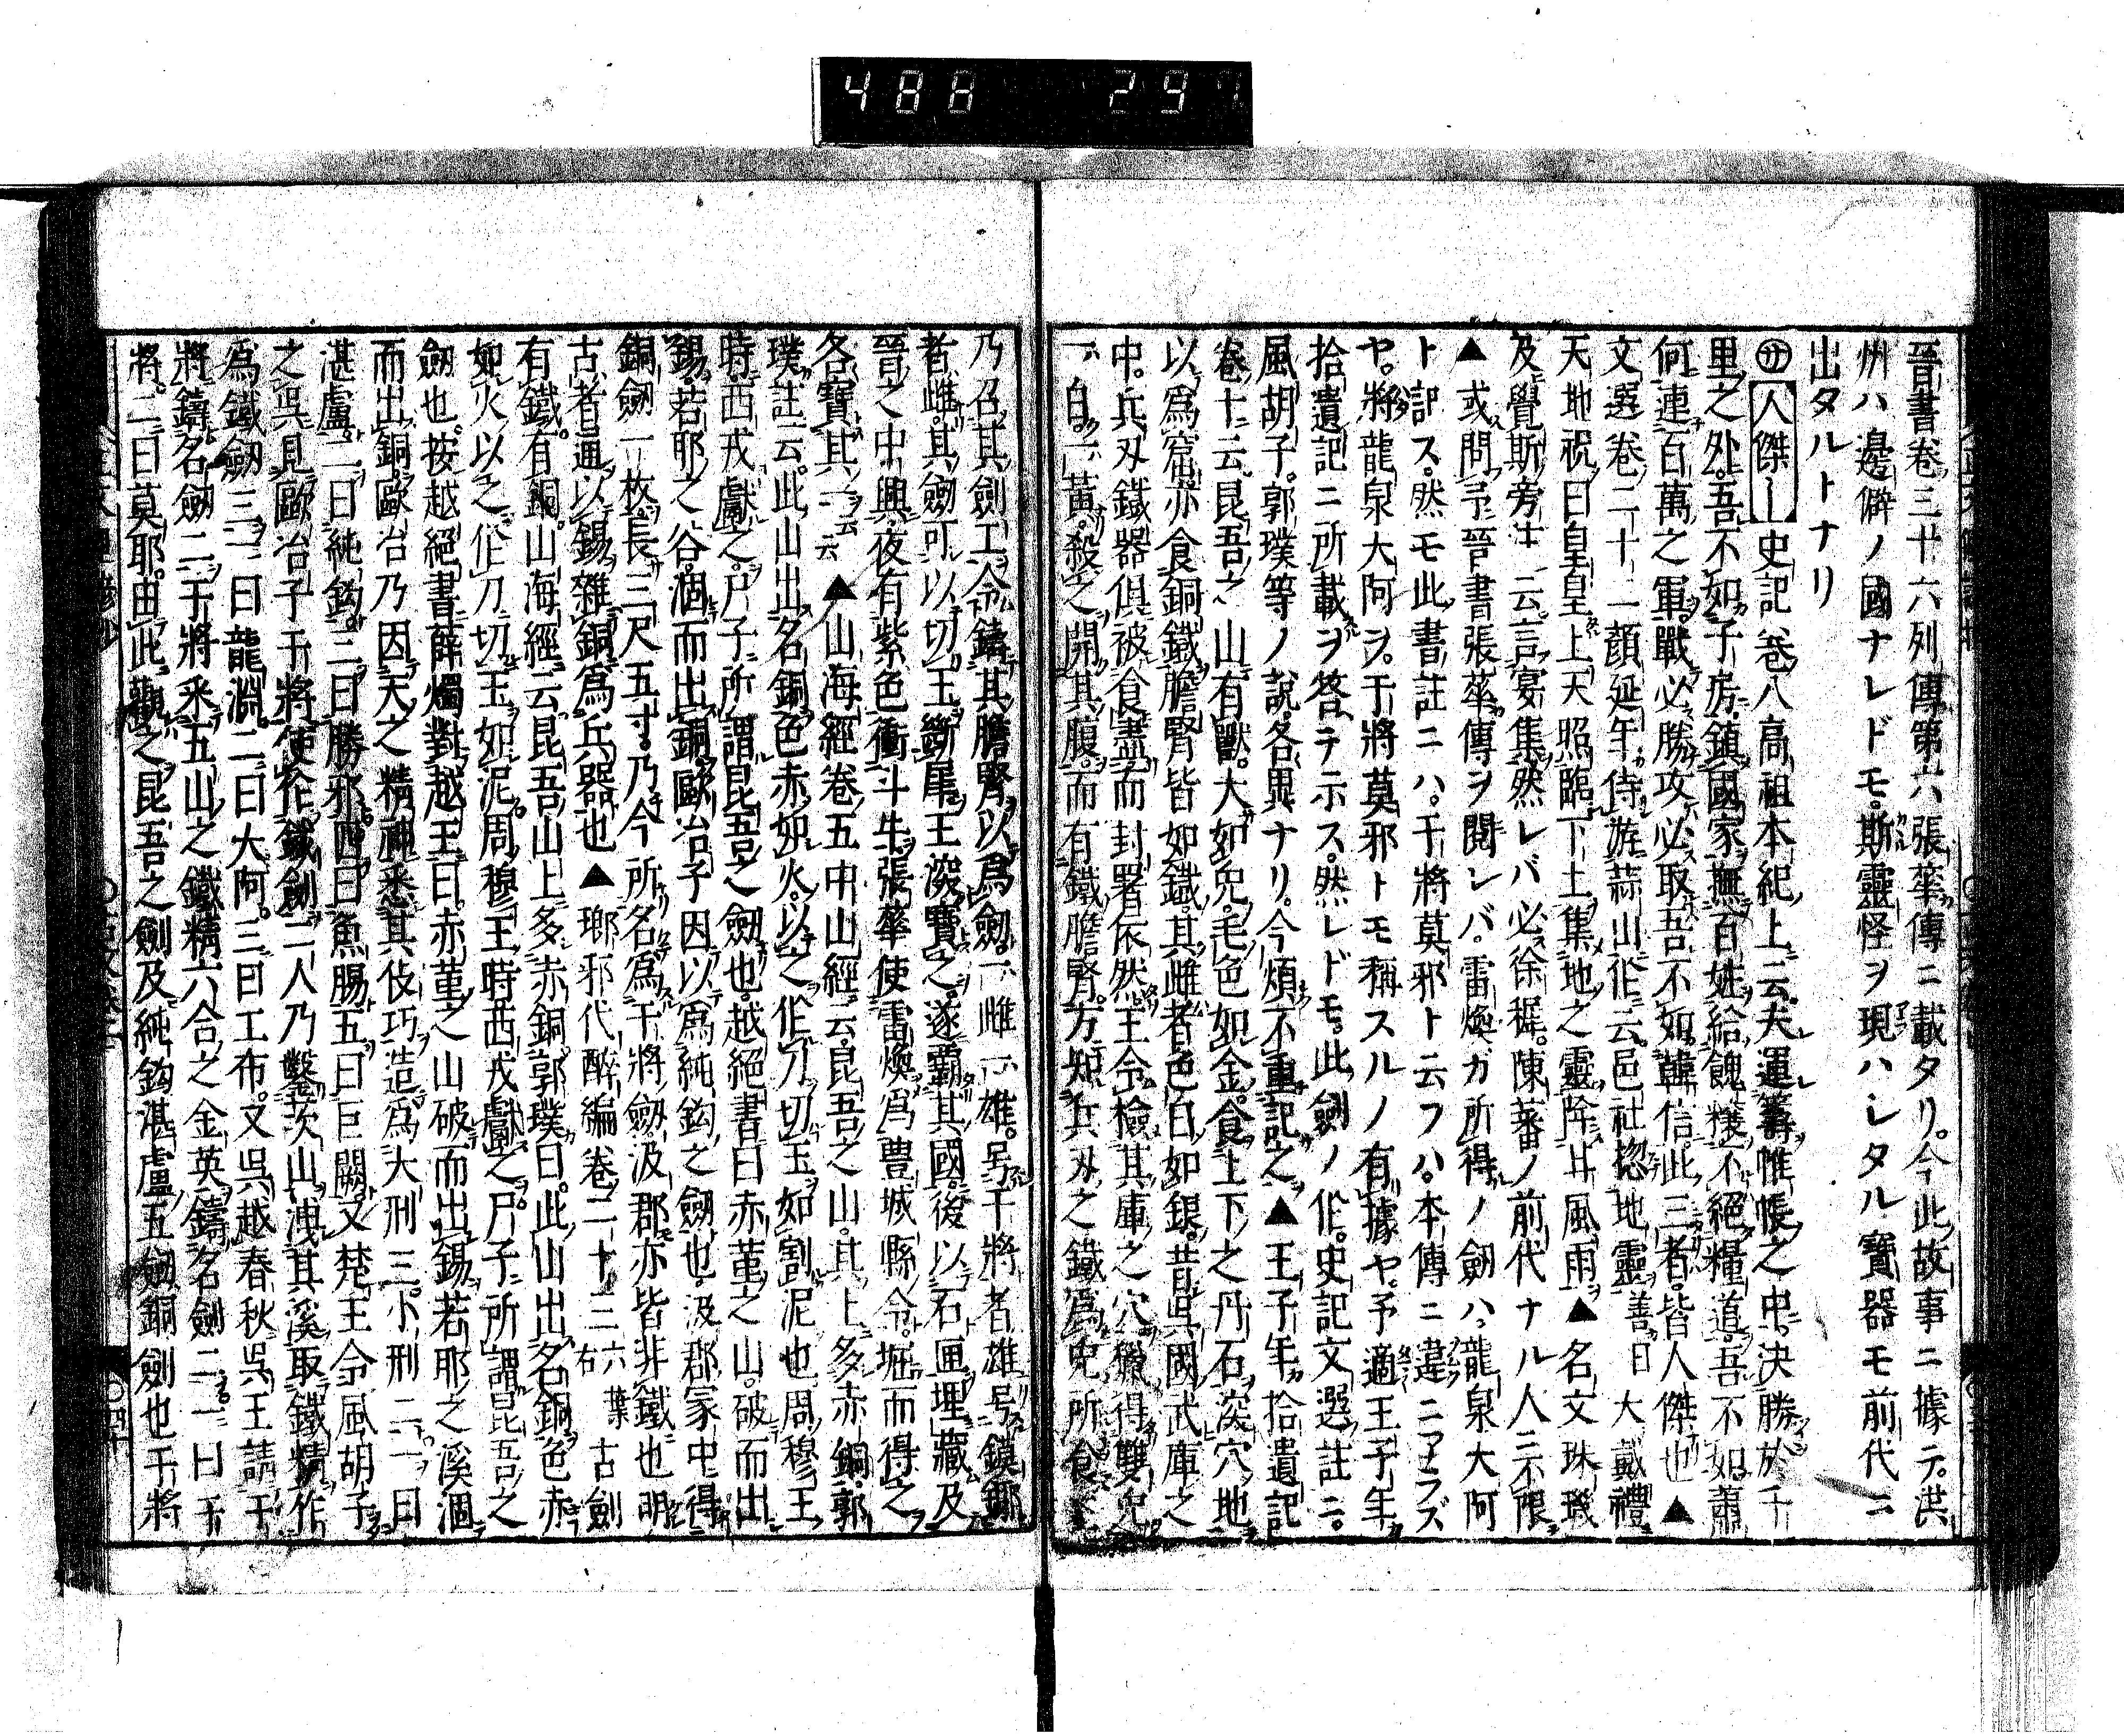 488 29
晉書卷三十六列傳第六張華傳ニ載タリ。今此故事ニ據テ。洪
州ハ邊僻ノ國ナレドモ。斯靈怪ヲ現ハシタル寶器モ前代ニ
出タルトナリ
㊛人傑｜史記卷八高祖本紀上云夫運籌帷帳之中。決勝於千
里之外。吾不如子房。鎮國家撫百姓給餽糧不絕糧道。吾不如蕭
何。連百萬之軍。戰必勝攻必取吾不如韓信。此三者。皆人傑也▲
文選卷二十二顏延年侍游蒜山作云。邑社揔地靈善曰大戴禮
天地祝曰皇皇上天照臨下土集地之靈降甘風雨▲名文珠璣
及覺斯旁註云言宴集然レバ必徐穉。陳蕃ノ前代ナル人ニ不限
▲或問予晉書張華傳ヲ閱レバ。雷煥ガ所得ノ劔ハ龍泉大阿
ト記ス。然モ此書註ニハ。干將莫邪ト云フハ。本傳ニ違ニアラズ
ヤ。將龍泉大阿ヲ。干將莫邪トモ稱スルノ有據ヤ。予適王子年
拾遺記ニ所載ヲ答テ示ス。然レドモ。此劍ノ作。史記文選註ニ。
風胡子。郭璞等ノ說。各異ナリ。今煩不重記之▲王子年拾遺記
卷十云。昆吾之山有獸。大如兔。毛色如金。食土下之丹石。深穴地
以爲窟。亦食銅鐵。膽腎皆如鐵。其雌者色白如銀。昔吳國武庫之
中。兵刃鐵器俱被食盡。而封署依然。王令檢其庫之穴。獵得雙兔。
一白。一黃。殺之。開其腹。而有鐵膽腎。方知兵刃之鐵爲兔所食。
乃召其劍工。令鑄其膽腎以爲劔。一雌一雄。号干將者雄。号鏌鋣
者雌。其劍可以切玉斷犀。王深寶之。遂霸其國。後以石匣埋藏。及
晉之中興。夜有紫色衝斗牛。張華使雷煥爲豐城縣令。堀而得之。
各寶其一云云▲山海經卷五中山經云。昆吾之山。其上多赤銅。郭
璞註云。此山出名銅。色赤如火。以之作刀。切玉如割泥也。周穆王
時。西戎獻之。尸子所謂昆吾之劔也。越絕書曰赤堇之山。破而出
錫。若耶之谷。涸而出銅。歐冶子因以爲純鈎之劔也。汲郡冢中。得
銅劔一枚。長三尺五寸。乃今所名爲干將劔。汲郡亦皆非鐵也明
古者通以錫雜銅爲兵器也▲瑯邪代醉編卷二十三六葉右古劍
有鐵。有銅。山海經云昆吾山上多赤銅。郭璞曰。此山出名銅。色赤
如火以之作刀。切玉如泥。周穆王時西戎獻之。尸子所謂昆吾之
劔也。按越絕書薛燭對越王曰。赤堇之山破而出錫若耶之溪涸
而出銅。歐冶乃因天之精神悉其伎巧。造爲大刑三。小刑二。一曰
湛盧。二曰純鈎。三曰勝邪。四曰魚腸。五曰巨闕。又楚王令風胡子
之吳見歐冶子干將使作鐵劍。二人乃鑿茨山。洩其溪。取鐵精。作
爲鐵劔三。一曰龍淵。二曰大阿。三曰工布。又吳越春秋吳王請干
將鑄名劔二。干將釆五山之鐵精六合之金英。鑄名劍二。一曰干
將。二曰莫耶。由此觀之昆吾之劍及純鈎湛盧五劔銅劍也干將